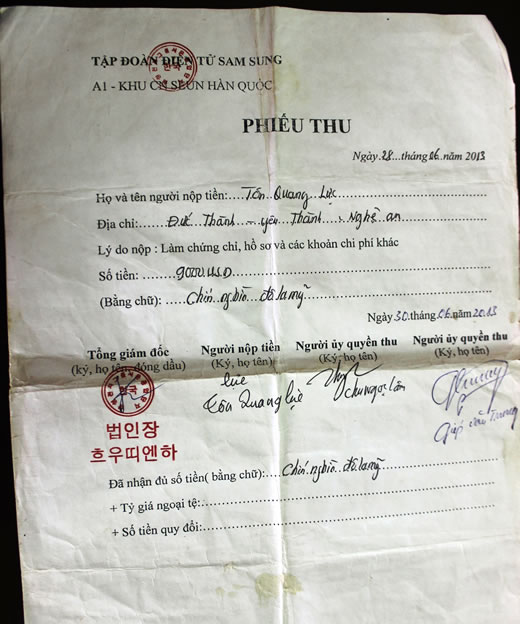 TẬP ĐOÀN ĐIỆN TỬ SAM SUNG
A1 - KHU CN SEUN HÀN QUỐC
PHIẾU THU
Ngày 28 tháng 06 năm 2013
Họ và tên người nộp tiền: Tôn Quang Lực
Địa chỉ: Đức Thành - yên Thành - Nghệ an
Lý do nộp : Làm chứng chỉ, hồ sơ và các khoản chi phí khác
Số tiền: 9000 USD
(Bằng chữ): Chín nghìn đô la mỹ
Ngày 30 tháng 06 năm 2013
Tổng giám đốc Người nộp tiền Người ủy quyền thu Người ủy quyền thu
(ký, họ tên, đóng dấu) (Ký, họ tên) (Ký, họ tên) (Ký, họ tên)
한국
lực
Tôn Quang Lực
Giáp văn Trương
법인장
흐우띠엔하
Đã nhận đủ số tiền( bằng chữ): Chín nghìn đô la mỹ
+ Tỷ giá ngoại tệ:
+ Số tiền quy đổi: